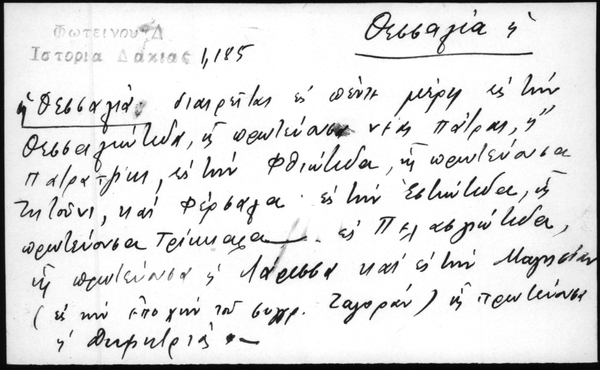 Θεσσαλία ἡ
Φωτεινοῦ Δ
Ἱστορία Δακίας 1,185
ἡ Θεσσαλία διαιρεῖται εἰς πέντε μέρη εἰς τὴν
Θεσσαλιώτιδα, ἧς πρωτεύουσα νέας Πάτρας, ἢ
Πατρατζίκι, εἰς τὴν Φθιώτιδα, ἧς πρωτεύουσα
Ζητοῦνι, καὶ Φέρσαλα · εἰς τὴν Ἑστιώτιδα, ἧς
πρωτεύουσα Τρίκκαλα εἰς Πελασγιώτιδα,
ἧς πρωτεύουσα ἡ Λάρισσα καὶ εἰς τὴν Μαγνησίαν
(εἰς τὴν ἐποχὴν τοῦ συγγρ. Ζαγοράν) ἧς πρωτεύουσα
ἡ Δημητριάς